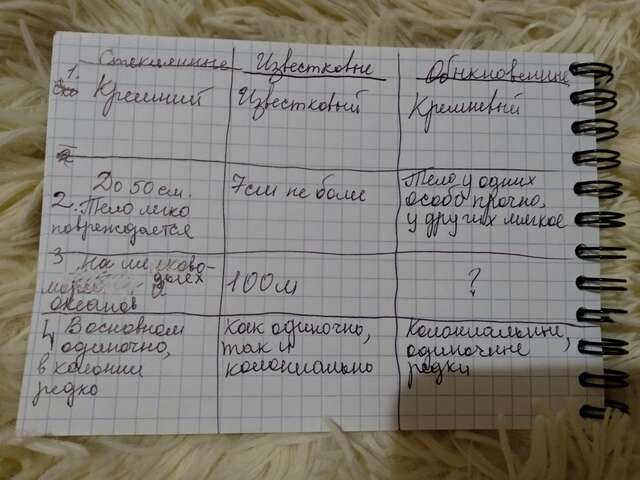 Стеклянные Известковые Обыкновенные
1. Кремний Известковый Кремневый
2. До 50 см. Тело легко повреждается
7см не более
Тело у одних
особо прочно,
у других мягкое
3 На мелково-
дьях
морей и
океанов
100м
?
4 В основном
одиночно,
в колонии
редко
Как одиночно,
так и
колониально
Колониальные,
одиночные
редки